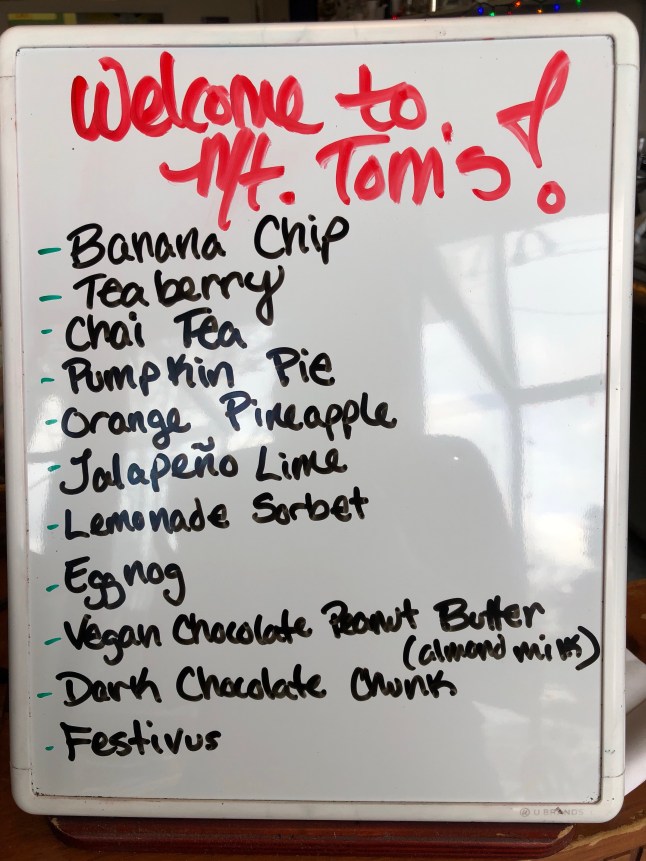 Welcome to
Mt. Tom's!
- Banana Chip
- Teaberry
- Chai Tea
- Pumpkin Pie
- Orange Pineapple
- Jalapeño Lime
- Lemonade Sorbet
- Eggnog
- Vegan Chocolate Peanut Butter
(almond milk)
- Dark Chocolate Chunk
- Festivus
U BRANDS